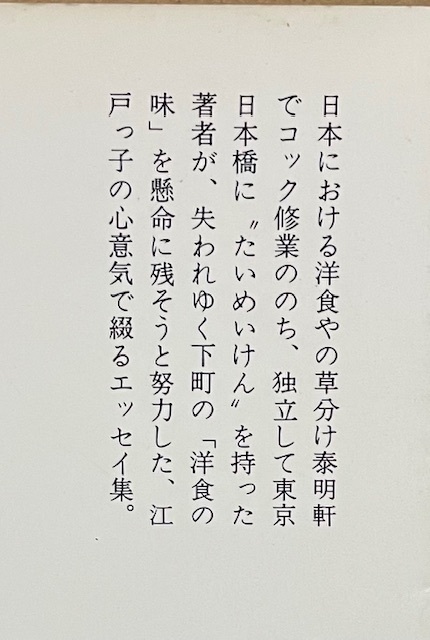 日本における洋食やの草分け泰明軒
でコック修業ののち、独立して東京
日本橋に〝たいめいけん〟を持った
著者が、失われゆく下町の「洋食の
味」を懸命に残そうと努力した、江
戸っ子の心意気で綴るエッセイ集。